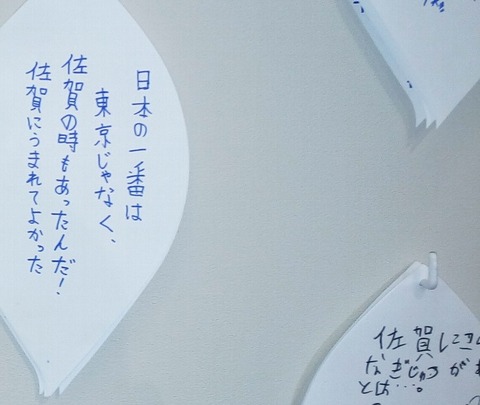 日本の一番は
東京じゃなく、
佐賀の時もあったんだ!
佐賀にうまれてよかった
佐賀にき
なぎじゅつが
とは…。